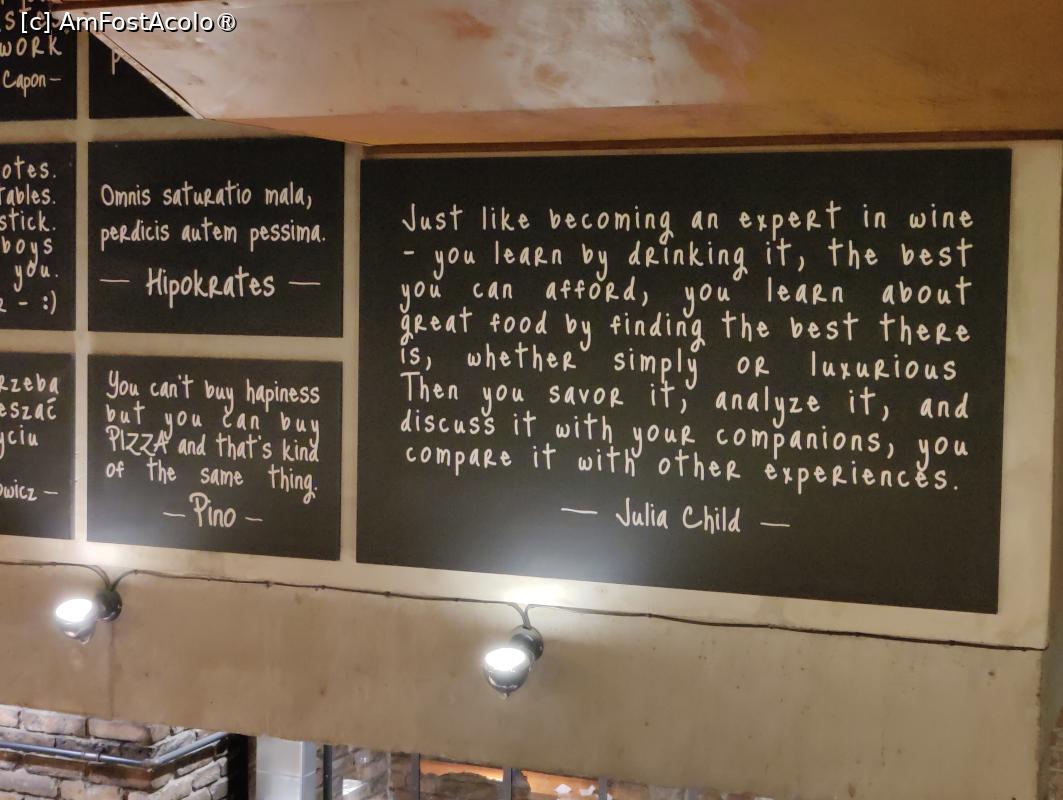 [c] AmFostAcolo®
WORK
Capon —
otes.
tables.
stick.
boys
you.
- :)
Omnis saturatio mala,
perdicis autem pessima.
— Hipokrates —
rzeba
eszać
yciu
owicz —
You can't buy hapiness
but you can buy
PIZZA and that's kind
of the same thing.
— Pino —
Just like becoming an expert in wine
- you learn by drinking it, the best
you can afford, you learn about
great food by finding the best there
is, whether simply or luxurious
Then you savor it, analyze it, and
discuss it with your companions, you
compare it with other experiences.
— Julia Child —